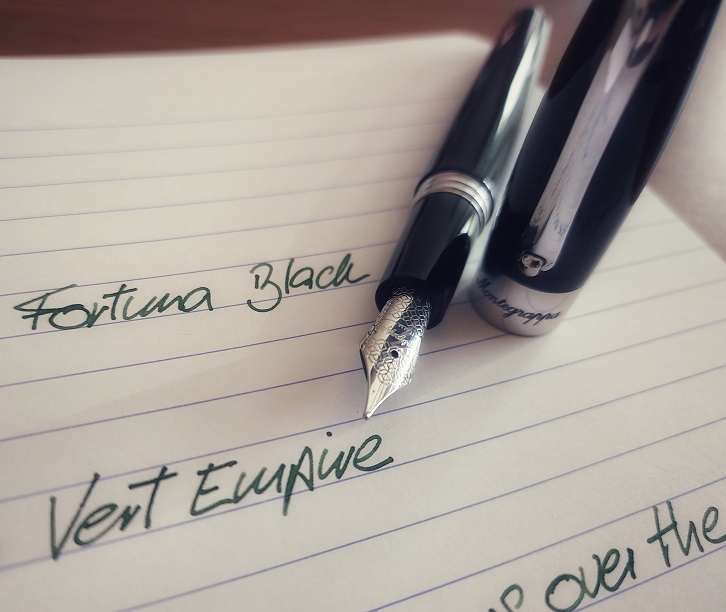 Fortuna Black
Montegrappa
Vert Empire
over the